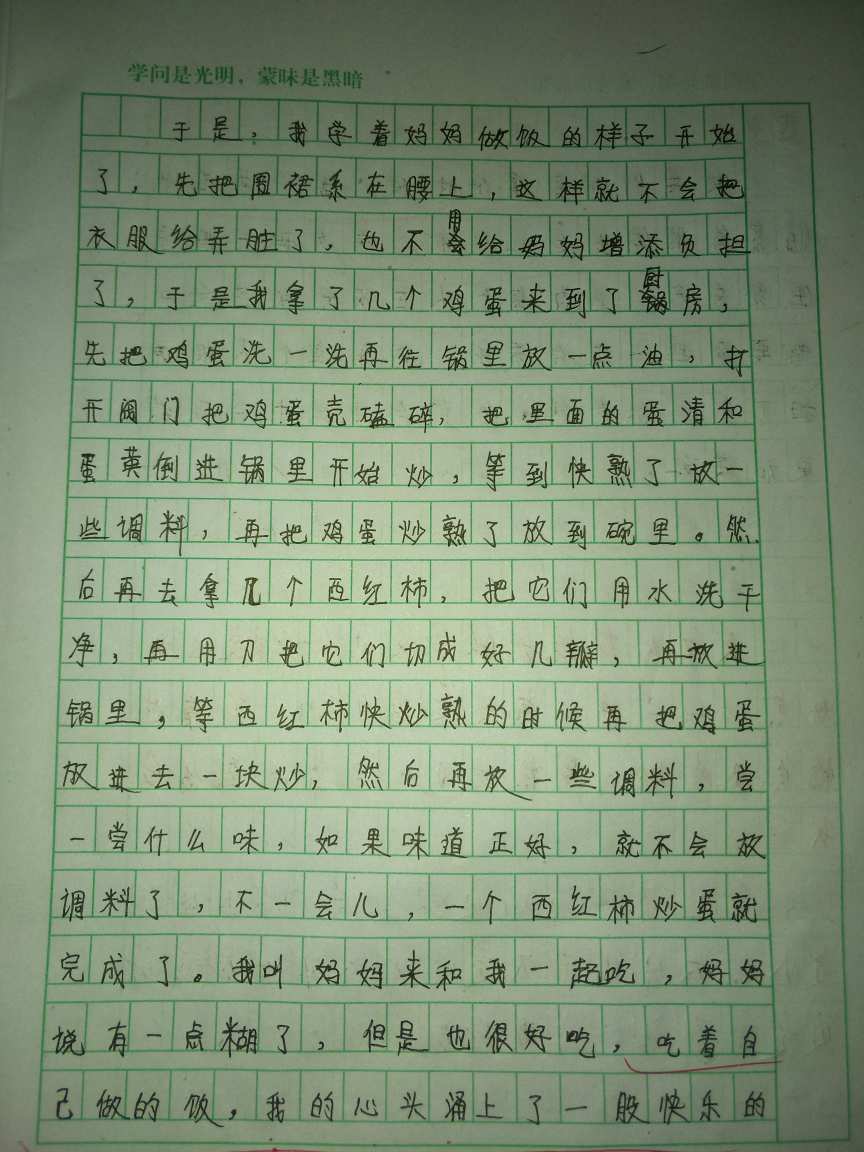 学问是光明，蒙昧是黑暗
于是，我学着妈妈做饭的样子开始
了，先把围裙系在腰上，这样就不会把
衣服给弄脏了，也不用会给妈妈增添负担
了，于是我拿了几个鸡蛋来到了厨房，
先把鸡蛋洗一洗再往锅里放一点油，打
开阀门把鸡蛋壳磕碎，把里面的蛋清和
蛋黄倒进锅里开始炒，等到快熟了放一
些调料，再把鸡蛋炒熟了放到碗里。然
后再去拿几个西红柿，把它们用水洗干
净，再用刀把它们切成好几瓣，再放进
锅里，等西红柿快炒熟的时候再把鸡蛋
放进去一块炒，然后再放一些调料，尝
一尝什么味，如果味道正好，就不会放
调料了，不一会儿，一个西红柿炒蛋就
完成了。我叫妈妈来和我一起吃，妈妈
说有一点糊了，但是也很好吃，吃着自
己做的饭，我的心头涌上了一股快乐的